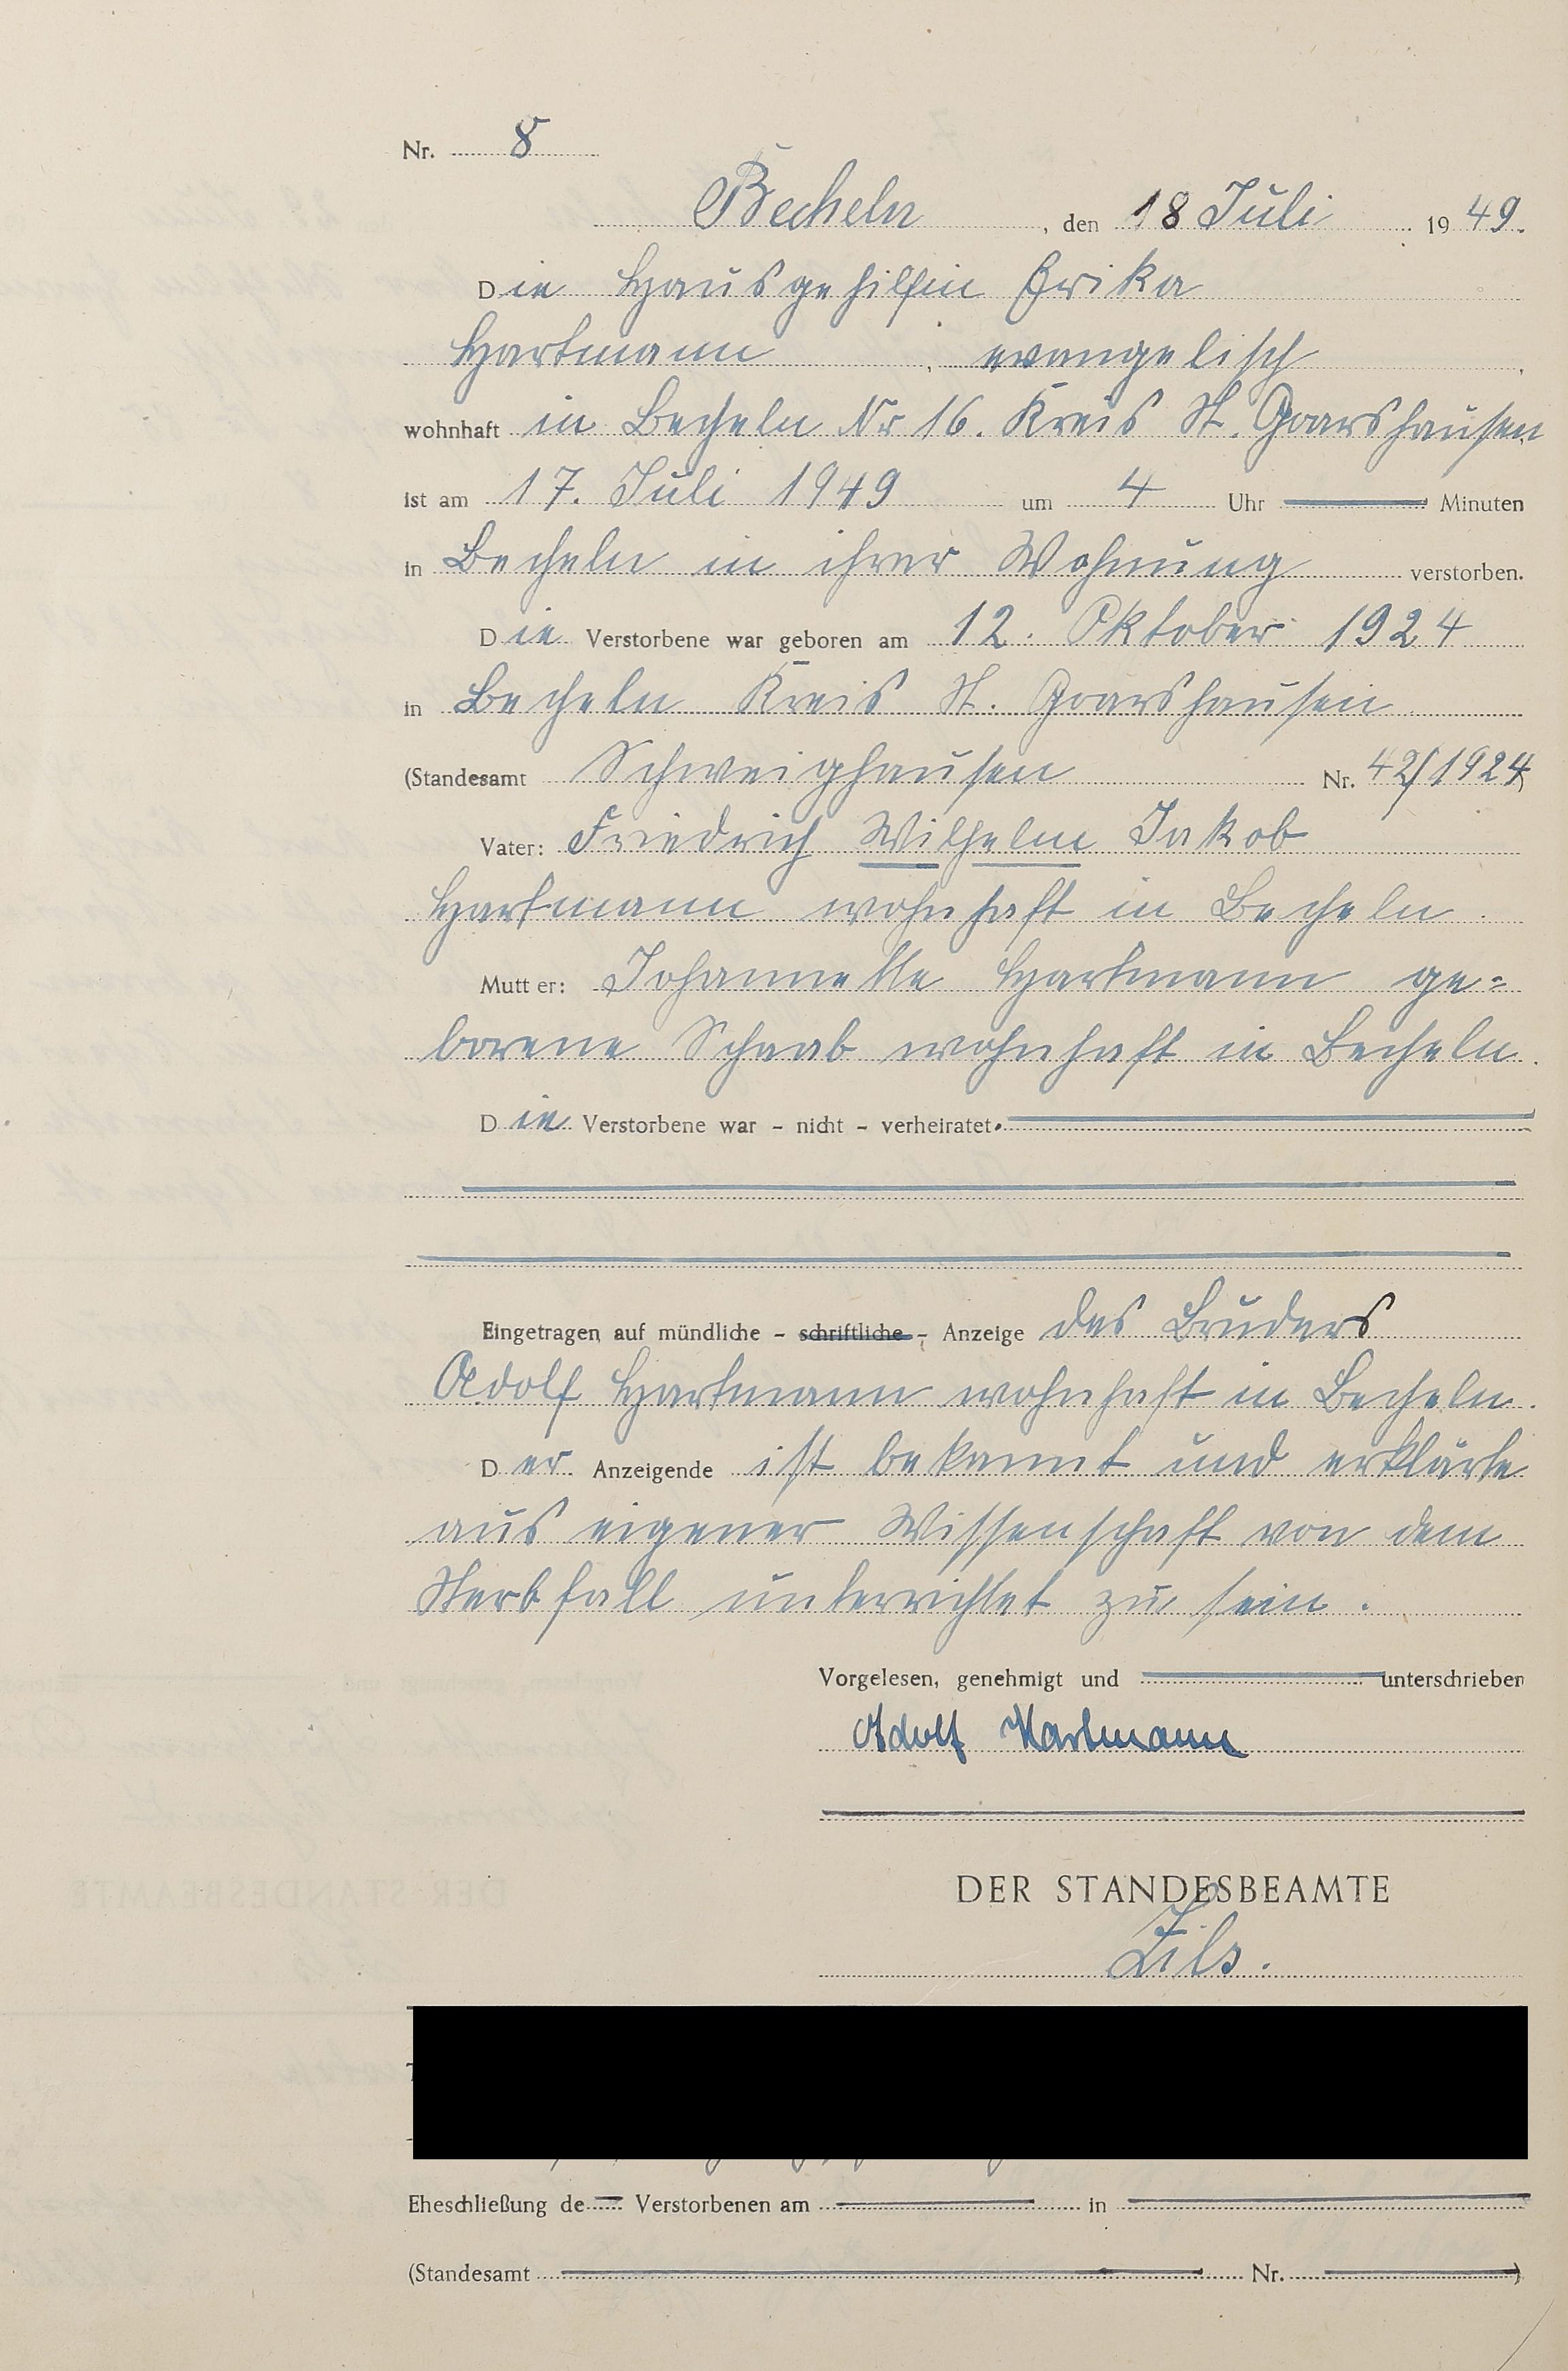 Nr. 8
Becheln, den 18 Juli 1949.
Die Hausgehilfin Erika
Hartmann, evangelisch,
wohnhaft in Becheln Nr 16. Kreis St. Goarshausen
ist am 17. Juli 1949 um 4 Uhr Minuten
in Becheln in ihrer Wohnung verstorben.
Die Verstorbene war geboren am 12. Oktober 1924
in Becheln Kreis St. Goarshausen
(Standesamt Schweighausen Nr. 42/1924)
Vater: Friedrich Wilhelm Jakob
Hartmann wohnhaft in Becheln.
Mutter: Johannette Hartmann ge=
borene Schaab wohnhaft in Becheln.
Die Verstorbene war - nicht - verheiratet.
Eingetragen auf mündliche - schriftliche - Anzeige des Bruders
Adolf Hartmann wohnhaft in Becheln.
Der Anzeigende ist bekannt und erklärte
aus eigener Wissenschaft von dem
Sterbfall unterrichtet zu sein.
Vorgelesen, genehmigt und unterschrieben
Adolf Hartmann
DER STANDESBEAMTE
Zils.
Eheschließung de Verstorbenen am in
(Standesamt Nr. )